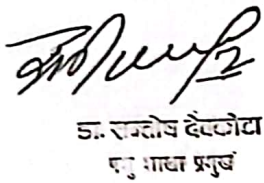 डा. सन्तोष देवकोटा
पशु शाखा प्रमुख